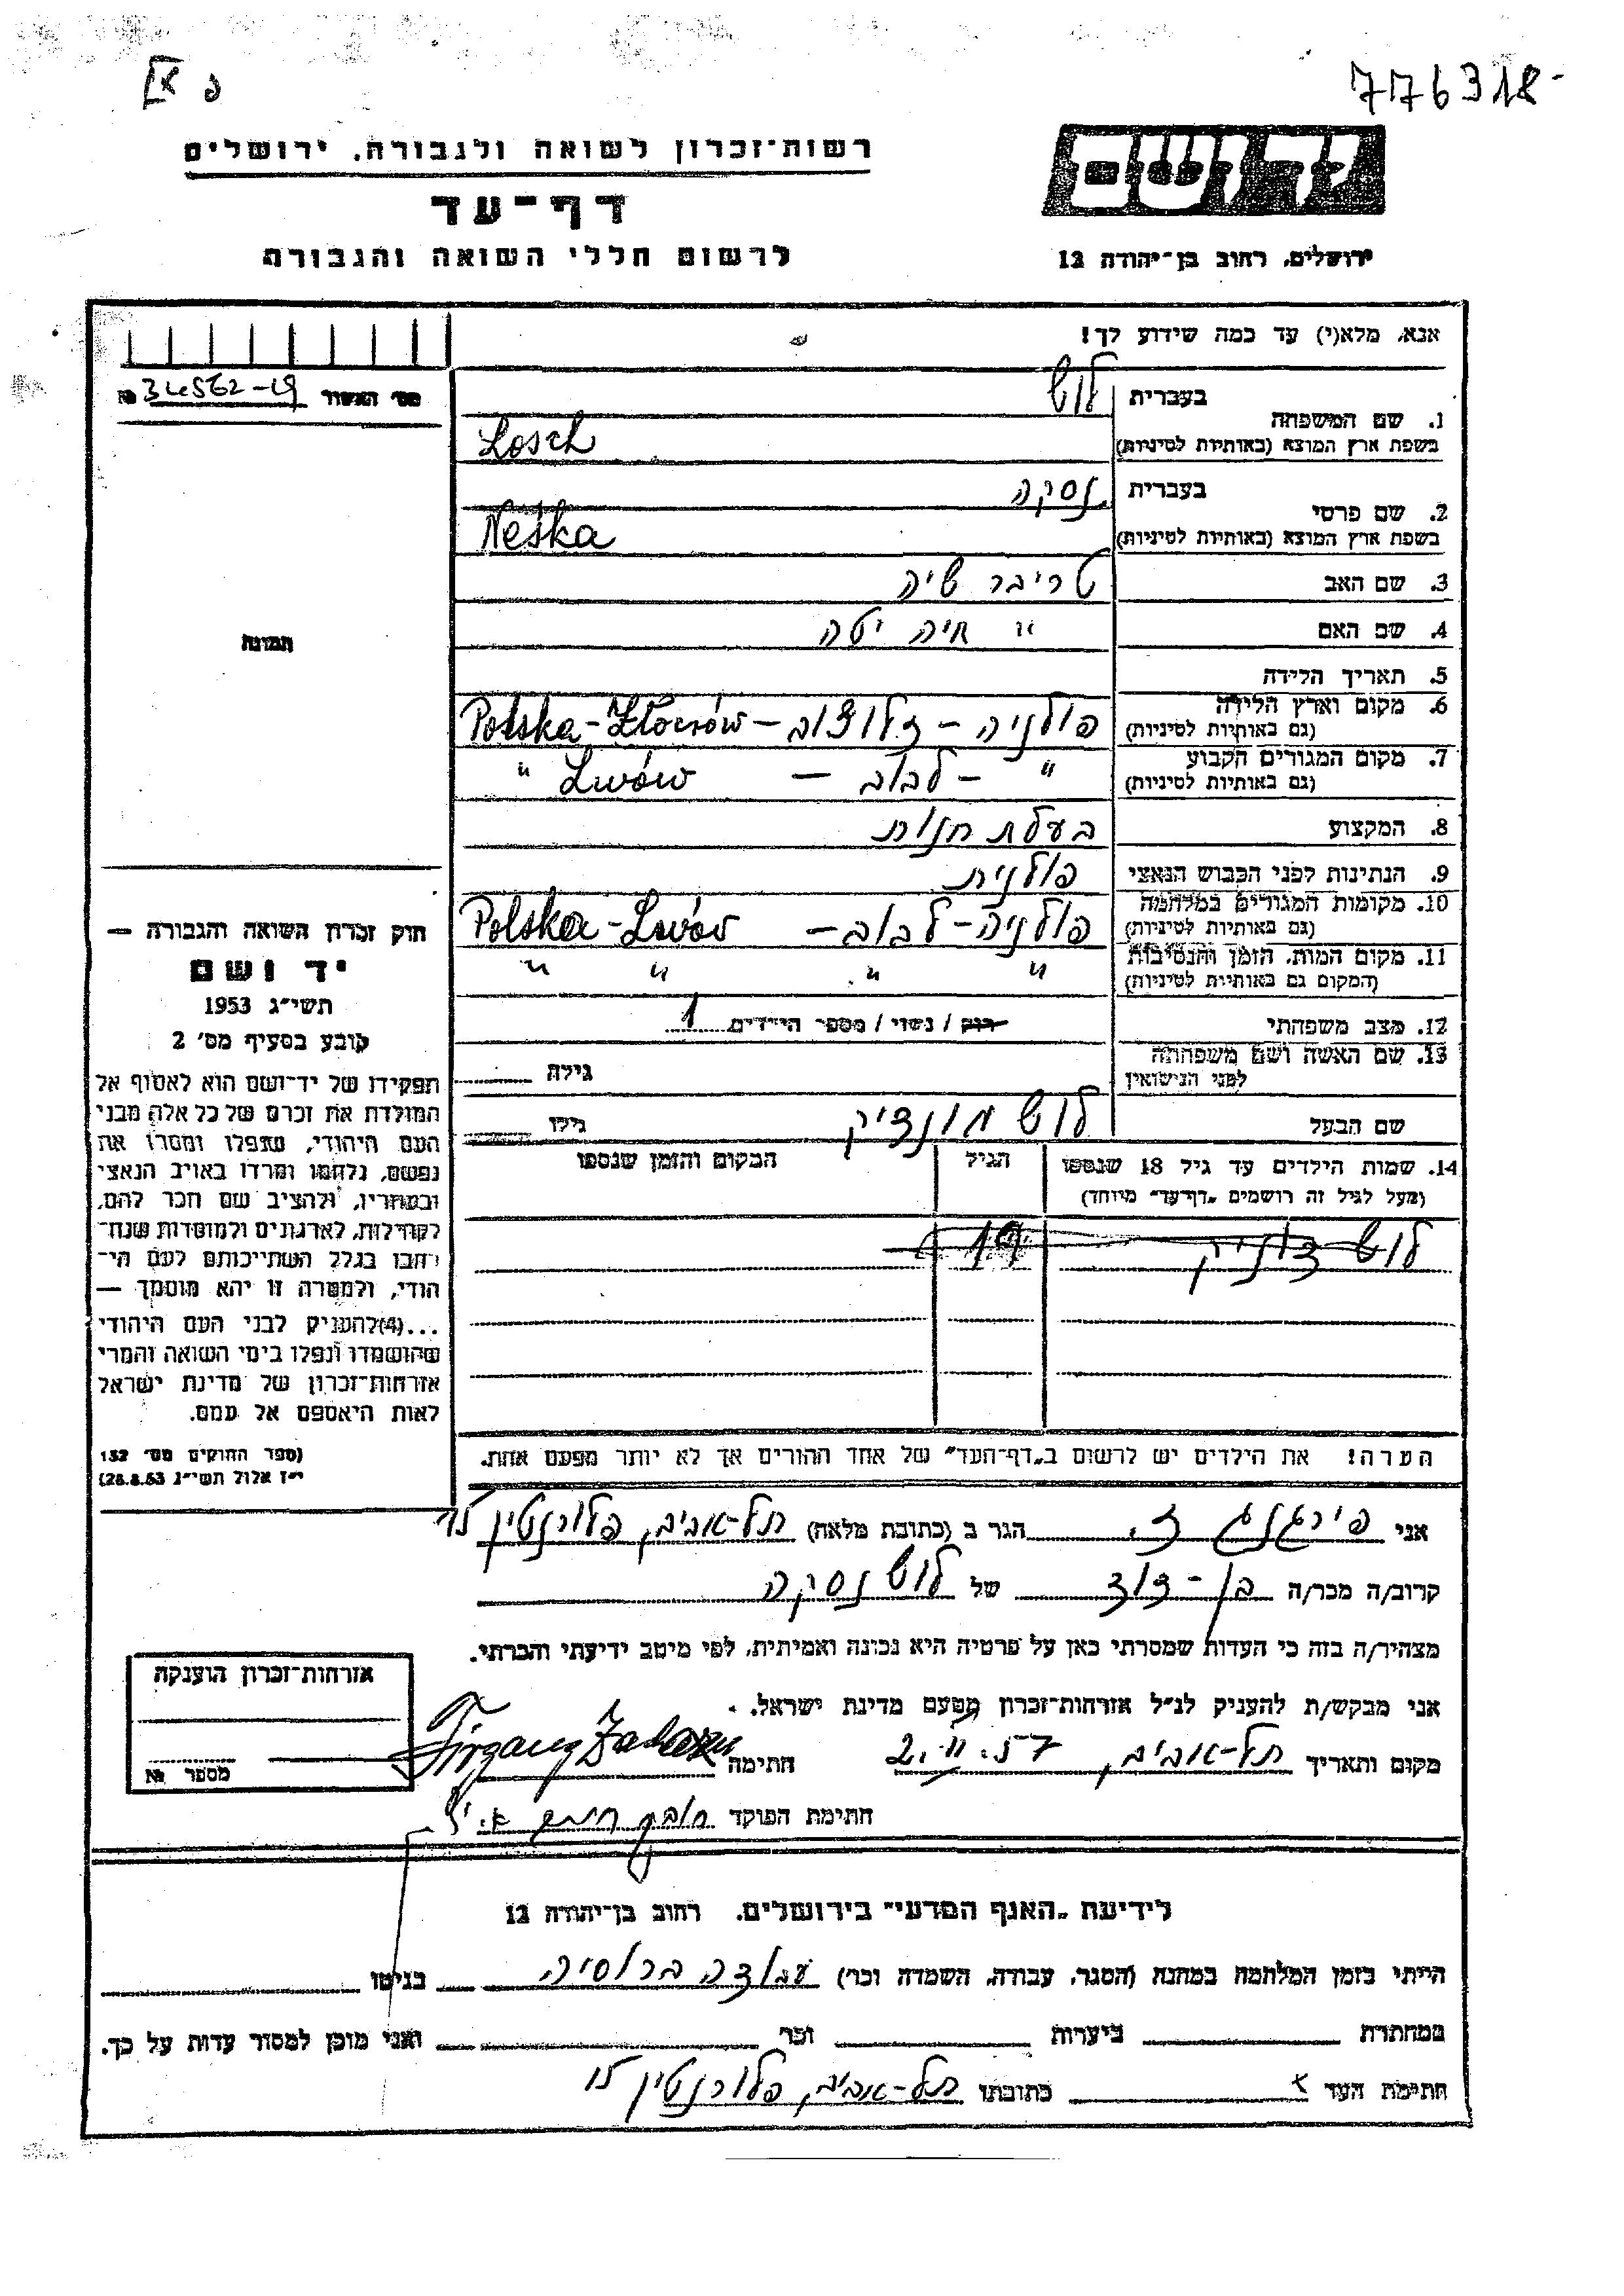 776318-
רשות־זכרון לשואה ולגבורה, ירושלים
דף־עד
לרשום חללי השואה והגבורה
ירושלים, רחוב בן־יהודה 12
אנא, מלא(י) עד כמה שידוע לך!
מס׳ האשור №
1. שם המשפחה
בעברית לוש
בשפת ארץ המוצא (באותיות לטיניות) Losch
2. שם פרטי
בעברית נסקה
בשפת ארץ המוצא (באותיות לטיניות) Neśka
3. שם האב טריבר שיה
4. שם האם " חיה יטה
5. תאריך הלידה
6. מקום וארץ הלידה פולניה – זלוצוב – Polska - Złoczów
(גם באותיות לטיניות)
7. מקום המגורים הקבוע " – לבוב – Lwów "
(גם באותיות לטיניות)
8. המקצוע בעלת חנות
9. הנתינות לפני הכבוש הנאצי פולנית
10. מקומות המגורים במלחמה פולניה – לבוב – Polska - Lwów
(גם באותיות לטיניות)
11. מקום המות, הזמן והנסיבות " " " "
(המקום גם באותיות לטיניות)
12. מצב משפחתי רווק / נשוי / מספר הילדים 1
13. שם האשה ושם משפחתה גילה
לפני הנישואין
שם הבעל לוש מונדיק גילו
14. שמות הילדים עד גיל 18 שנספו הגיל המקום והזמן שנספו
(מעל לגיל זה רושמים „דף־עד״ מיוחד)
לוש 19
הערה! את הילדים יש לרשום ב„דף־העד״ של אחד ההורים אך לא יותר מפעם אחת.
תמונה
חוק זכרון השואה והגבורה —
יד ושם
תשי״ג 1953
קובע בסעיף מס׳ 2
תפקידו של יד־ושם הוא לאסוף אל
המולדת את זכרם של כל אלה מבני
העם היהודי, שנפלו ומסרו את
נפשם, נלחמו ומרדו באויב הנאצי
ובעוזריו, ולהציב שם וזכר להם,
לקהילות, לארגונים ולמוסדות שנח־
רבו בגלל השתייכותם לעם הי־
הודי, ולמטרה זו יהא מוסמך —
...(4) להעניק לבני העם היהודי
שהושמדו ונפלו בימי השואה והמרי
אזרחות־זכרון של מדינת ישראל
לאות היאספם אל עמם.
(ספר החוקים מס׳ 132
י״ז אלול תשי״ג 28.8.53)
אני פירגנג ז. הגר ב (כתובת מלאה) תל-אביב, פלורנטין
קרוב/ה מכר/ה בן-דוד של לוש נסקה
מצהיר/ה בזה כי העדות שמסרתי כאן על פרטיה היא נכונה ואמיתית, לפי מיטב ידיעתי והכרתי.
אני מבקש/ת להעניק לנ״ל אזרחות־זכרון מטעם מדינת ישראל.
מקום ותאריך תל-אביב, 2.11.57 חתימה Firgang
חתימת הפוקד
אזרחות־זכרון הוענקה
מספר №
לידיעת „האגף המדעי״ בירושלים, רחוב בן־יהודה 12
הייתי בזמן המלחמה במחנה (הסגר, עבודה, השמדה וכו׳) עבודה ברוסיה בגיטו
במחתרת ביערות וכו׳ ואני מוכן למסור עדות על כך.
חתימת העד x כתובתו תל-אביב, פלורנטין